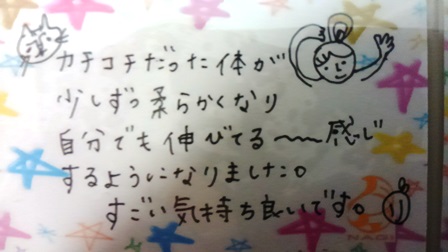 カチコチだった体が
少しずつ柔らかくなり
自分でも伸びてる〜〜感じ
するようになりました。
すごい気持ち良いです。